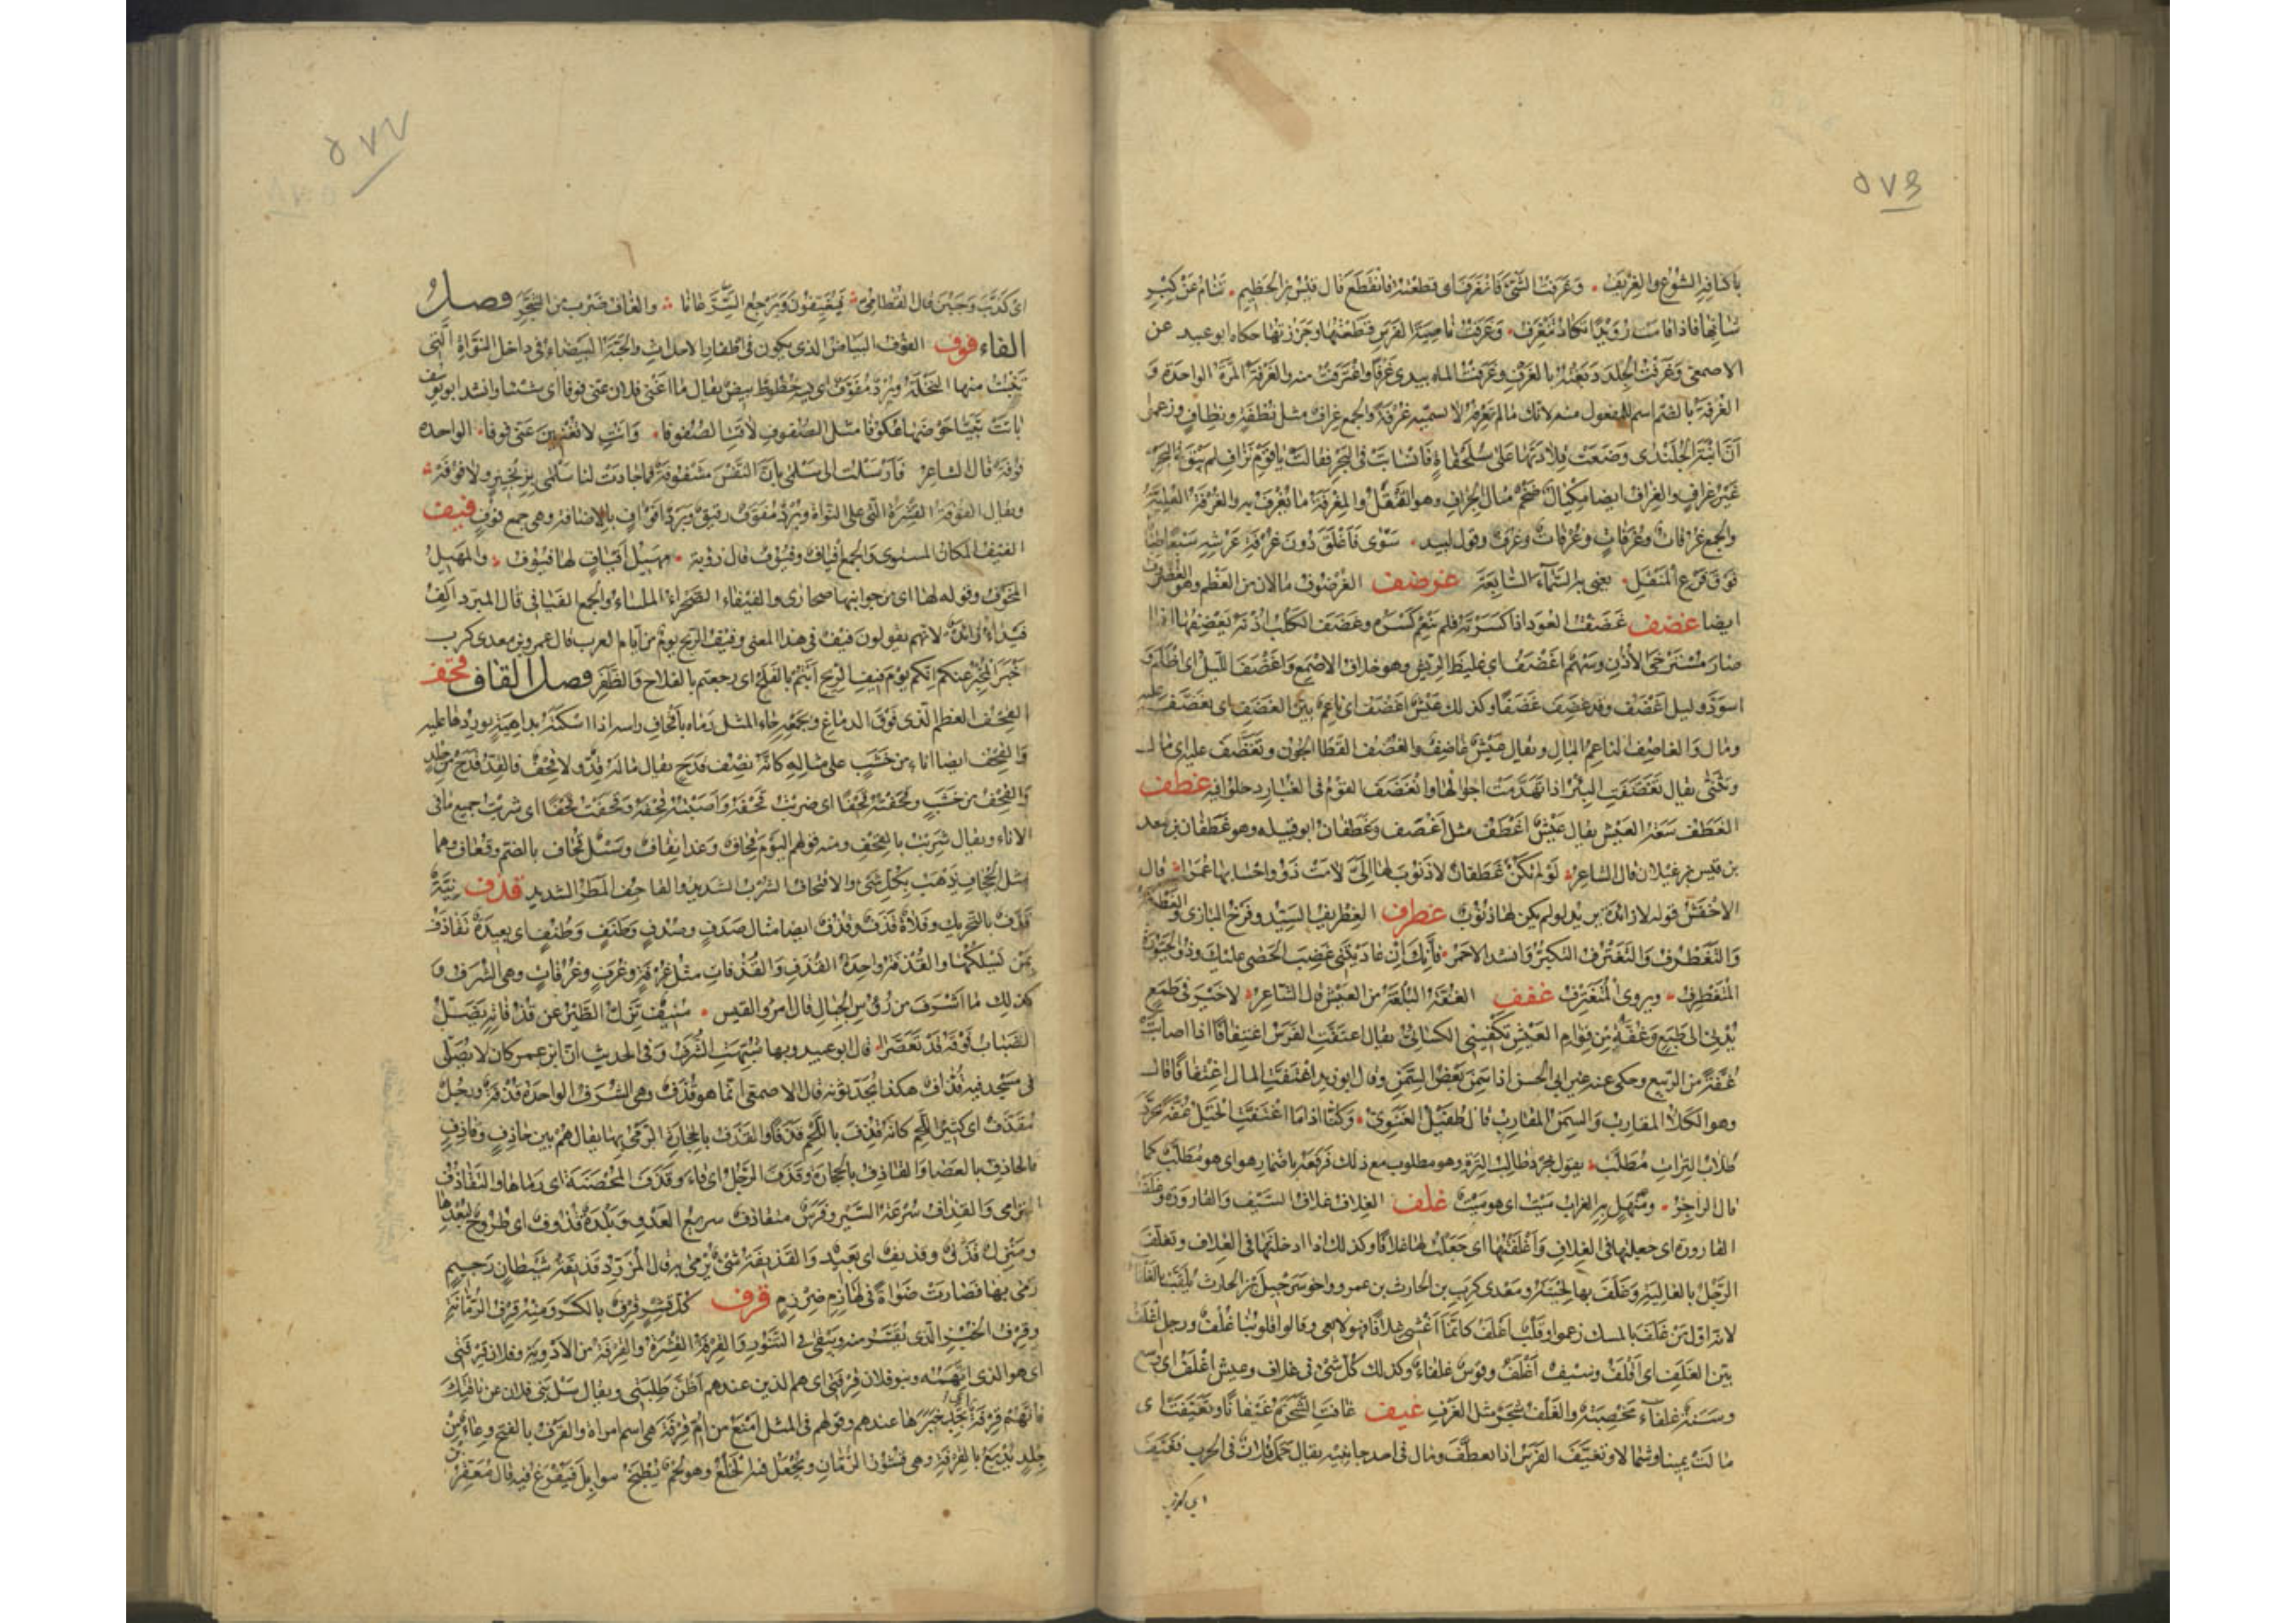 ٥٧٤
باكناف الشوع والغريف وغرفت الشئ فانغرف اى قطعته فانقطع قال قيس بن الخطيم تنام عن كبر
شانها فاذا قامت رويدا تكاد تنغرف وغرفت ناصية الفرس قطعتها وجززتها حكاه ابو عبيد عن
الاصمعى وغرفت الجلد دبغته بالغرف وغرفت الماء بيدى غرفا واغترفت منه والغرفة المرة الواحدة و
الغرفة بالضم اسم للمفعول منه لانك ما لم تغرفه لا تسميه غرفة والجمع غراف مثل نطفة ونطاف وزعموا
ان ابنة الجلندى وضعت قلادتها على سلحفاة فانسابت فى البحر فقالت يا قوم نزاف لم يبق فى البحر
غير غراف والغراف ايضا مكيال ضخم مثال الجراف وهو القنقل والمغرفة ما يغرف به والغرفة العلية
والجمع غرفات وغرفات وغرفات وغرف وقول لبيد سوى فاغلق دون غرفة عرشه سبعا طباقا
فوق فرع المنقل يعنى به السماء السابعة غرضف الغرضوف ما لان من العظم وهو الغضروف
ايضا غضف غضفت العود اذا كسرته فلم تنعم كسره وغضف الكلب اذنه يغضفها اذا
صار مسترخى الاذن وسهم اغضف اى غليظ الريش وهو خلاف الاصمع واغضف الليل اى اظلم و
اسود وليل اغضف وقد غضف غضفا وكذلك عيش اغضف اى ناعم بين الغضف اى تغضف عليه
ومال والغاضف الناعم البال ويقال عيش غاضف والغضف القطا الجون وتغضف عليه اى مال
وتثنى يقال تغضفت البئر اذا تهدمت اجوالها وانغضف القوم فى الغبار دخلوا فيه غطف
الغطف سعة العيش يقال عيش اغطف مثل اغضف وغطفان ابو قبيله وهو غطفان بن سعد
بن قيس بن غيلان قال الشاعر لو لم تكن غطفان لا ذنوب لها الى لامت ذوو احسابها عمرا قال
الاخفش قوله لا زائدة يريد لو لم يكن لها ذنوب غطرف الغطريف السيد وفرخ البازى والغطرفة
والتغطرف والتغترف التكبر وانشد الاحمر فانك ان عاديتنى غضب الحصى عليك وذو الجبورة
المتغطرف ويروى المتغترف غفف الغفة البلغة من العيش قال الشاعر لا خير فى طمع
يدنى الى طبع وغفة من قوام العيش تكفينى الكسائى يقال اغتفت الفرس اغتفافا اذا اصابت
غفة من الربيع وحكى عنه غير ابى الحسن اذا سمن بعض السمن وقال ابو زيد اغتفت المال اغتفافا قال
وهو الكلأ المقارب والسمن المقارب قال طفيل الغنوى وكنا اذا ما اغتفت الخيل غفة تجرد
طلاب الترات مطلب يقول تجرد طالب الترة وهو مطلوب مع ذلك فرفعه باضمار هو اى هو مطلب كما
قال الراجز ومنهل به الغراب ميت اى هو ميت غلف الغلاف غلاف السيف والقارورة وغلفت
القارورة اى جعلتها فى الغلاف واغلفتها اى جعلت لها غلافا وكذلك اذا ادخلتها فى الغلاف وتغلف
الرجل بالغاليه وغلف بها لحيته ومعدى كرب بن الحارث بن عمرو واخو شرحبيل بن الحارث يلقب بالغلفاء
لانه اول من غلف بالمسك زعموا وقلب اغلف كانما اغشى غلافا فهو لا يعى وقالوا قلوبنا غلف ورجل اغلف
بين الغلف اى اقلف وسيف اغلف وقوس غلفاء وكذلك كل شئ فى غلاف وعيش اغلف اى واسع
وسنة غلفاء مخصبة والغلف شجر مثل الغرف غيف غافت الشجرة غيفانا وتغيفت اى
مالت يمينا وشمالا وتغيف الفرس اذا تعطف ومال فى احد جانبيه يقال حمل فلان فى الحرب فغيف
اى كذب
٥٧٧
اى كذب وجبن قال القطامى فيغيفون ويرجع السرعانا والغاف ضرب من الشجر فصل
الفاء فوف الفوف البياض الذى يكون فى اظفار الاحداث والحبة البيضاء فى داخل النواة التى
تنبت منها النخلة وبرد مفوف اى فيه خطوط بيض يقال ما اغنى فلان عنى فوفا اى شيئا وانشد ابو يوسف
باتت تبيا حوضها عكوفا مثل الصفوف لاقت الصفوفا وانت لا تغنين عنى فوفا الواحده
فوفة قال الشاعر فارسلت الى سلمى بان النفس مشفوفة فما جادت لنا سلمى بزنجير ولا فوفة
ويقال الفوفة القشرة التى على النواة وبرد مفوف رقيق وبرد افواف بالاضافة وهى جمع فوف فيف
الفيف المكان المستوى والجمع افياف وفيوف قال رؤبة مهيل افياف لها فيوف والمهيل
المخوف وقوله لها اى من جوانبها صحارى والفيفاء الصحراء الملساء والجمع الفيافى قال المبرد الف
فيفاء زائدة لانهم يقولون فيف فى هذا المعنى وفيف الريح يوم من ايام العرب قال عمرو بن معدى كرب
خبر المخبر عنكم انكم يوم فيف الريح ابتم بالفلج اى رجعتم بالفلاح والظفر فصل القاف قحف
القحف العظم الذى فوق الدماغ وبجمعه جاء المثل رماه باقحاف راسه اذا اسكته بداهية يوردها عليه
والقحف ايضا اناء من خشب على مثاله كانه نصف قدح يقال ماله قد ولا قحف فالقد قدح من جلد
والقحف من خشب وقحفته قحفا اى ضربت قحفه واصبت قحفه وقحفت قحفا اى شربت جميع ما فى
الاناء ويقال شربت بالقحف ومنه قولهم اليوم قحاف وغدا نقاف وسيل قحاف بالضم وقعاف وهما
مثل الجحاف يذهب بكل شئ والاقتحاف الشرب الشديد والقاحف المطر الشديد قذف نية
قذف بالتحريك وفلاة قذف وقذف ايضا مثال صدف وصدف وطنف وطنف اى بعيدة تقاذف
بمن يسلكها والقذفة واحدة القذف والقذفات مثل غرفة وغرف وغرفات وهى الشرف و
كذلك ما اشرف من رؤس الجبال قال امرؤ القيس منيف تزل الطير عن قذفاته يضل
الضباب فوقه قد تعصرا قال ابو عبيد وبها شبهت الشرف وفى الحديث ان ابن عمر كان لا يصلى
فى مسجد فيه قذاف هكذا يحدثونه قال الاصمعى انما هو قذف وهى الشرف الواحدة قذفة ورجل
مقذف اى كثير اللحم كانه قذف باللحم قذفا والقذف بالحجارة الرمى بها يقال هم بين حاذف وقاذف
فالحاذف بالعصا والقاذف بالحجارة وقذف الرجل اى قاء وقذف المحصنة اى رماها والتقاذف
الترامى والقذاف سرعة السير وفرس متقاذف سريع العدو وبلدة قذوف اى طروح لبعدها
ومنزل قذف وقذيف اى بعيد والقذيفة شئ يرمى به قال المزرد قذيفة شيطان رجيم
رمى بها فصارت ضواة فى لهازم ضرزم قرف كل قشر قرف بالكسر ومنه قرف الرمانة
وقرف الخبز الذى يقشر منه ويبقى فى التنور والقرفة القشرة والقرفة من الادوية وفلان قرفتى
اى هو الذى اتهمته وبنو فلان قرفتى اى هم الذين عندهم اظن طلبتى ويقال سل بنى فلان عن ناقتك
فانهم قرفة اى تجد خبرها عندهم وقولهم فى المثل امنع من ام قرفة هى اسم امراة والقرف بالفتح وعاء من
جلد يدبغ بالقرفة وهى قشور الرمان ويجعل فيه الخلع وهو لحم يطبخ بتوابل فيفرغ فيه قال معقر بن